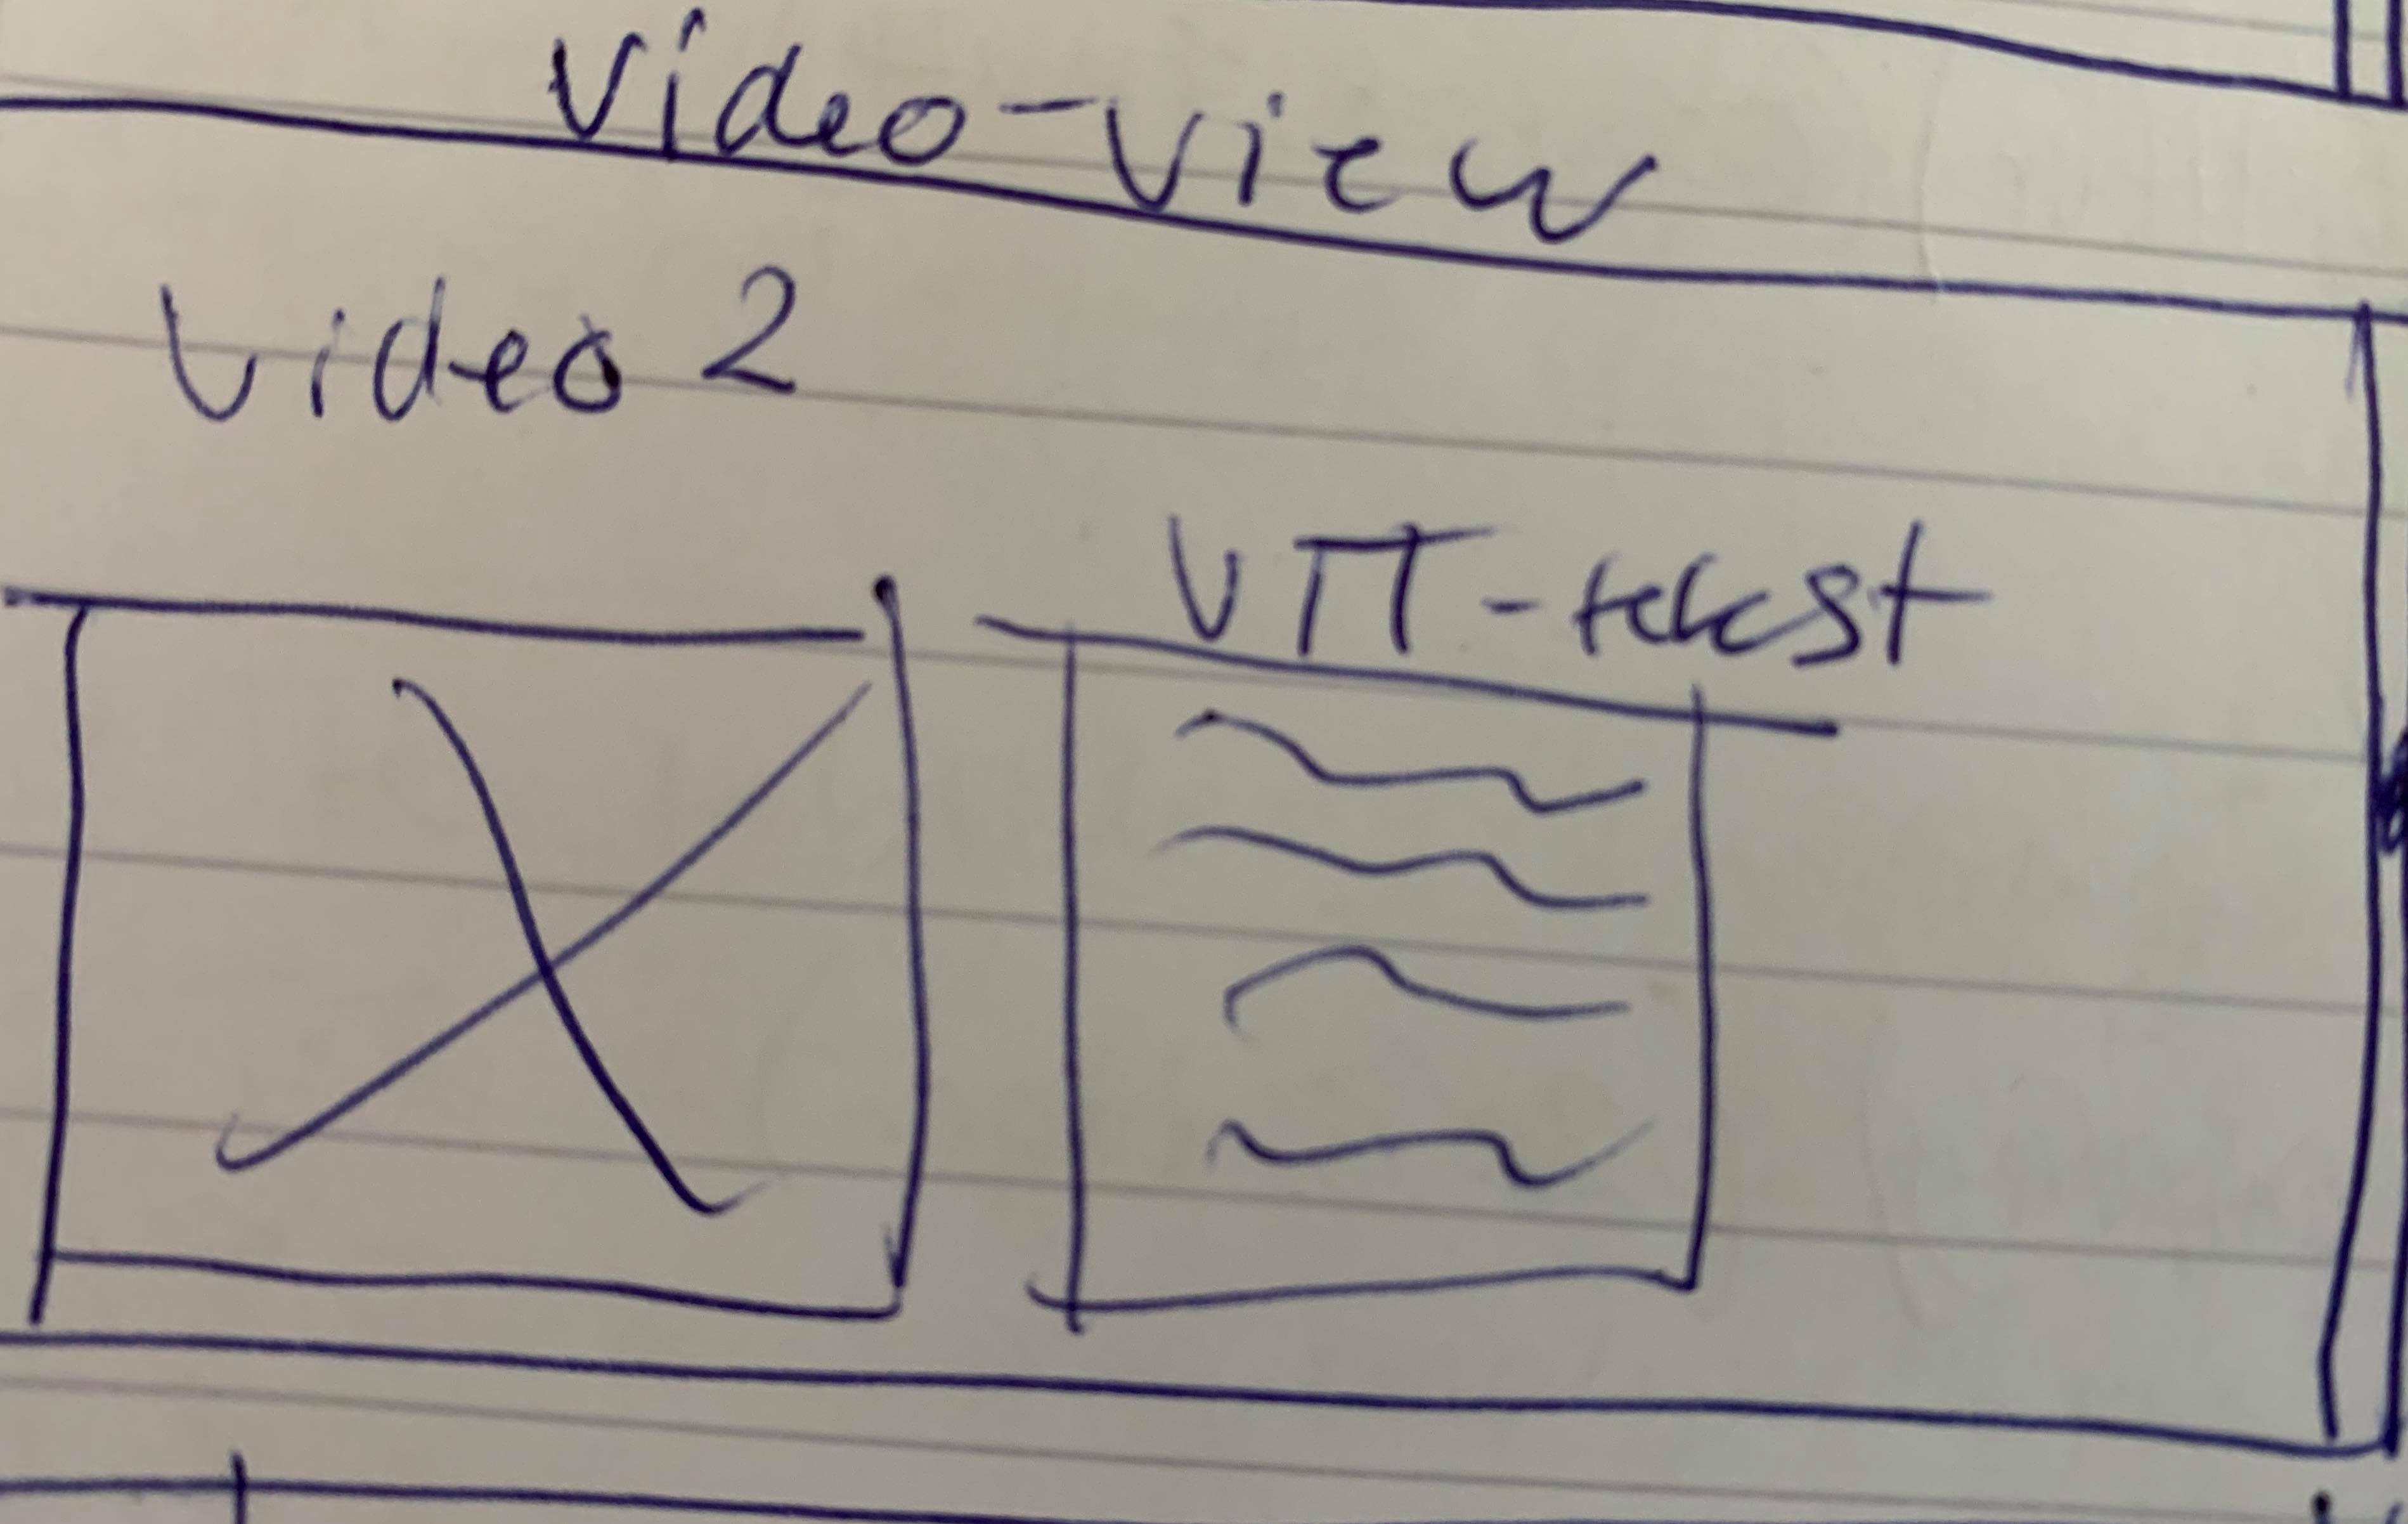 Video-view
Video 2
VTT-tekst